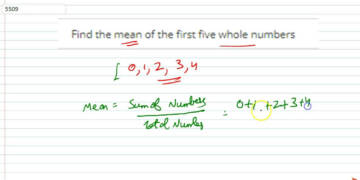 5509
Find the mean of the first five whole numbers
[ 0, 1, 2, 3, 4
Mean = Sum of Numbers / Total Number = 0+1+2+3+4